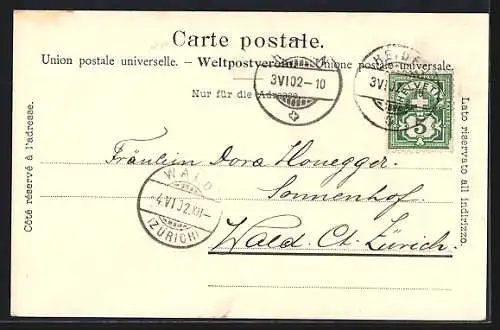 Carte postale.
Union postale universelle. – Weltpostverein. – Unione postale universale.
Nur für die Adresse.
3 VI 02 – 10
HEIDEN
3 VI 02
HELVETIA
5
Côté réservé à l'adresse.
Lato riservato all indirizzo.
Fräulein Dora Honegger.
Sonnenhof.
Wald. Ct. Zürich.
WALD
4. VI 02. XII –
(ZÜRICH)